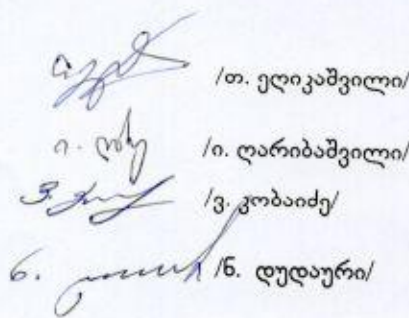 /თ. ეღიკაშვილი/
ი. ღარ /ი. ღარიბაშვილი/
ვ. /ვ. კობაიძე/
ნ. /ნ. დუდაური/